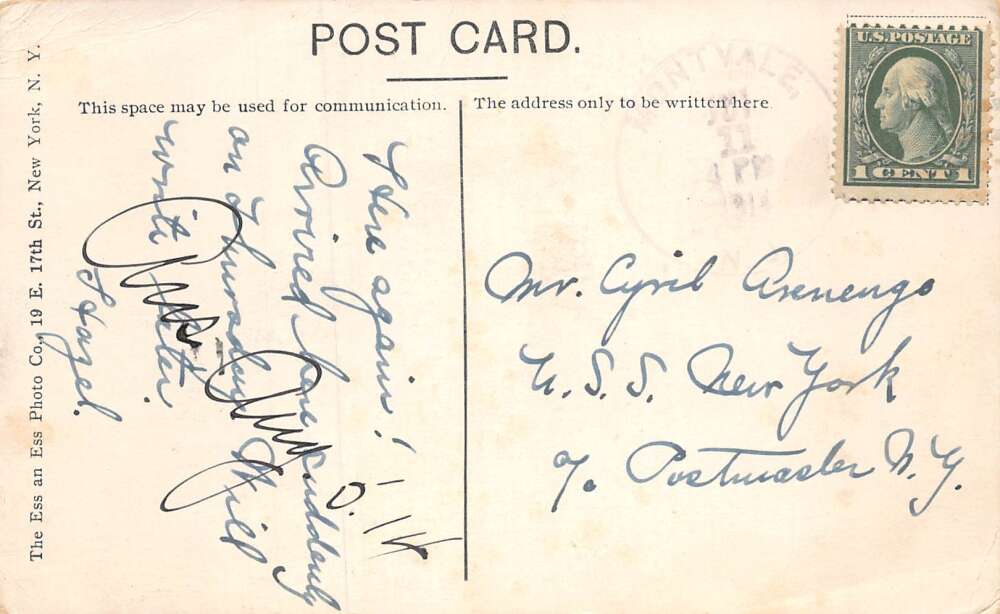 POST CARD.
This space may be used for communication.
The address only to be written here
U.S. POSTAGE
1 CENTS 1
MONTVALE,
11
4 PM
Here again!
Arrived here suddenly
on Thursday Will
write later.
Hazel.
Mr. Cyril Arenengo
U. S. S. New York
℅ Postmaster N.Y.
The Ess an Ess Photo Co., 19 E. 17th St., New York, N. Y.